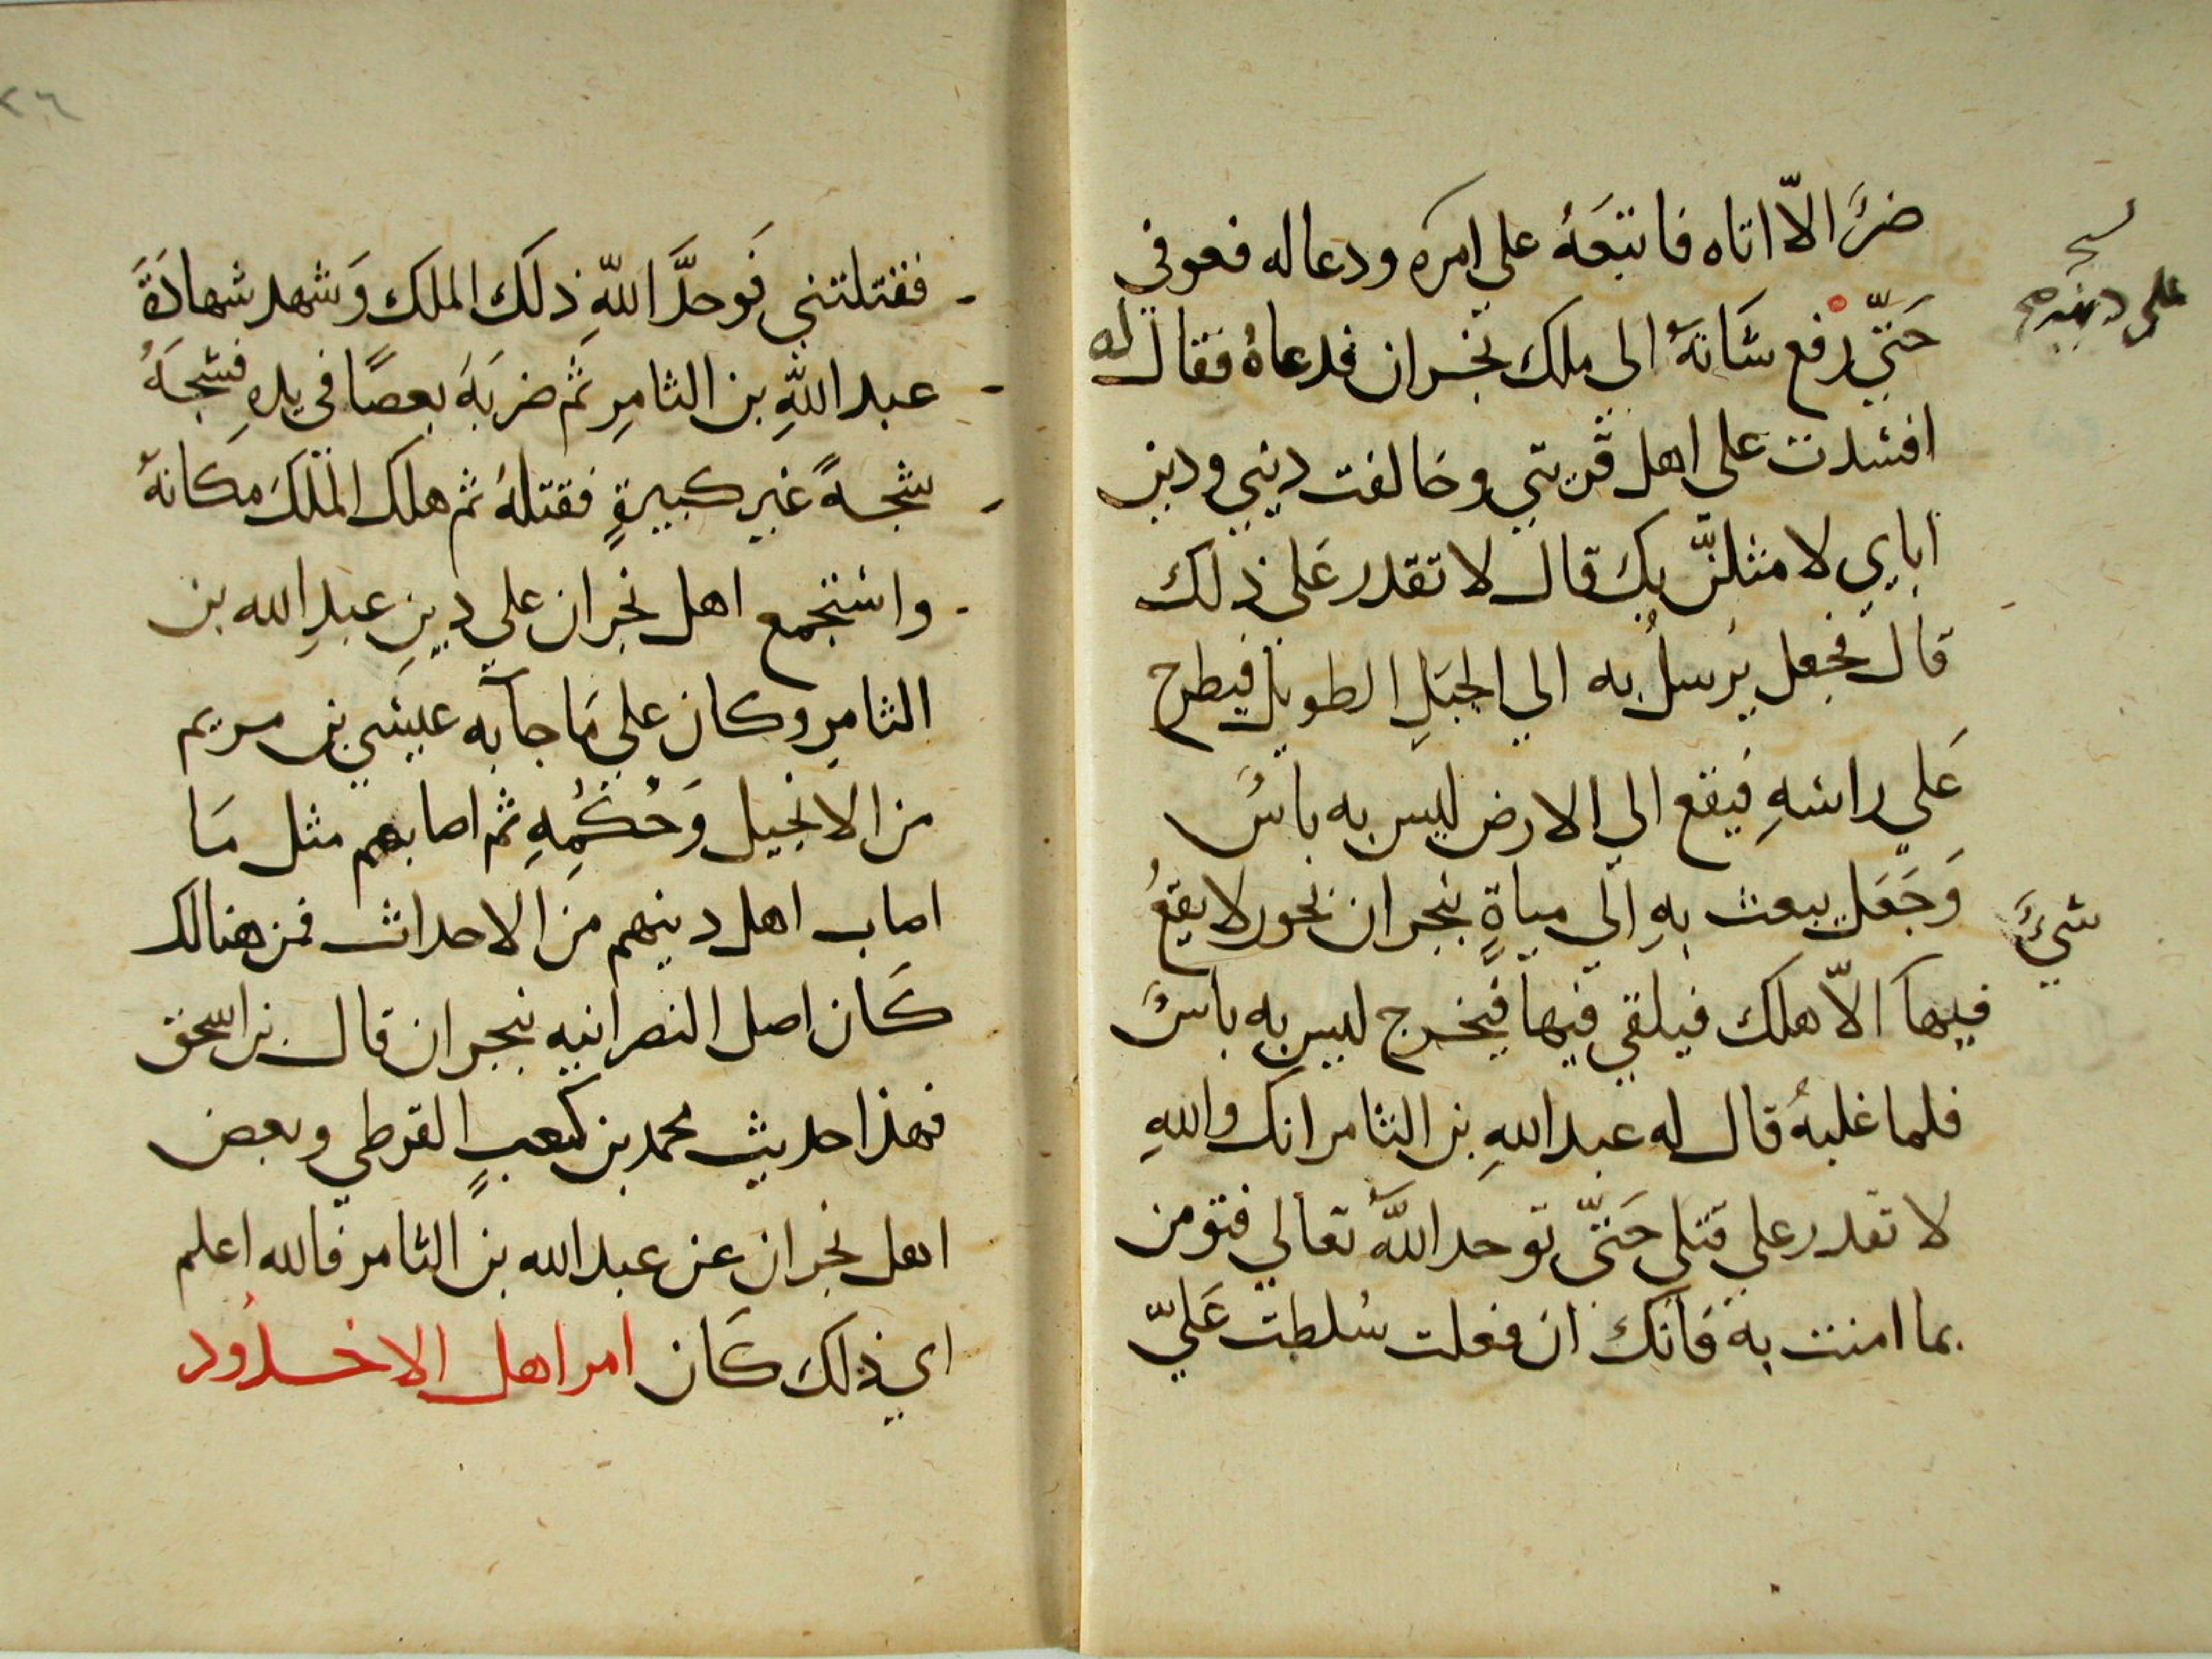 ضرٌّ الاّ اتاه فاتبَعَهُ على امره ودعا له فعوفي
حَتّي رفع شَانهُ الى ملك نجران فدعاهُ فقال له
افسدت على اهل قريتي وخالفت ديني ودين
اباي لامثلنّ بك قال لا تقدر عَلى ذلك
قال فجعل يُرسلُ به الي الجبَلِ الطويل فيطرح
عَلي راسهِ فيقع الي الارض ليس به باسٌ
وَجَعَل يبعث بهِ الي مياهٍ بنجران بحور لا يقعُ
شيٌ
فيها الاّ هلك فيلقي فيها فيخرج ليس به باسٌ
فلما غلبهُ قال له عبد اللهِ بن الثامر انك واللهِ
لا تقدر علي قتلي حَتّى توحد اللهَ تعالي فتومن
بما امنت به فانك ان فعلت سُلطت عَليّ
على دينه
٢٦
فقتلتني فَوحدَّ اللهَ ذلكَ الملك وَشهد شهادَةَ
عبد اللهِ بن الثامرِ ثم ضربَهَ بعصًا في يدهِ فشجهُ
شجةً غير كبيرةٍ فقتلهُ ثم هلك الملكَ مكانهُ
واستجمع اهل نجران علي دينِ عبدِ الله بن
الثامرِ وكان علي مَا جآ به عيسي بن مريم
من الانجيل وَحُكمُهِ ثم اصابهم مثل مَا
اصاب اهل دينهم من الاحداث فمن هنالك
كَان اصل النصرانيه بنجران قال بن اسحق
فهذا حديث محمد بن كعبٍ القرطي وبعض
اهل نجران عن عبد الله بن الثامر فالله اعلم
اي ذلك كَان امر اهل الاخدُود